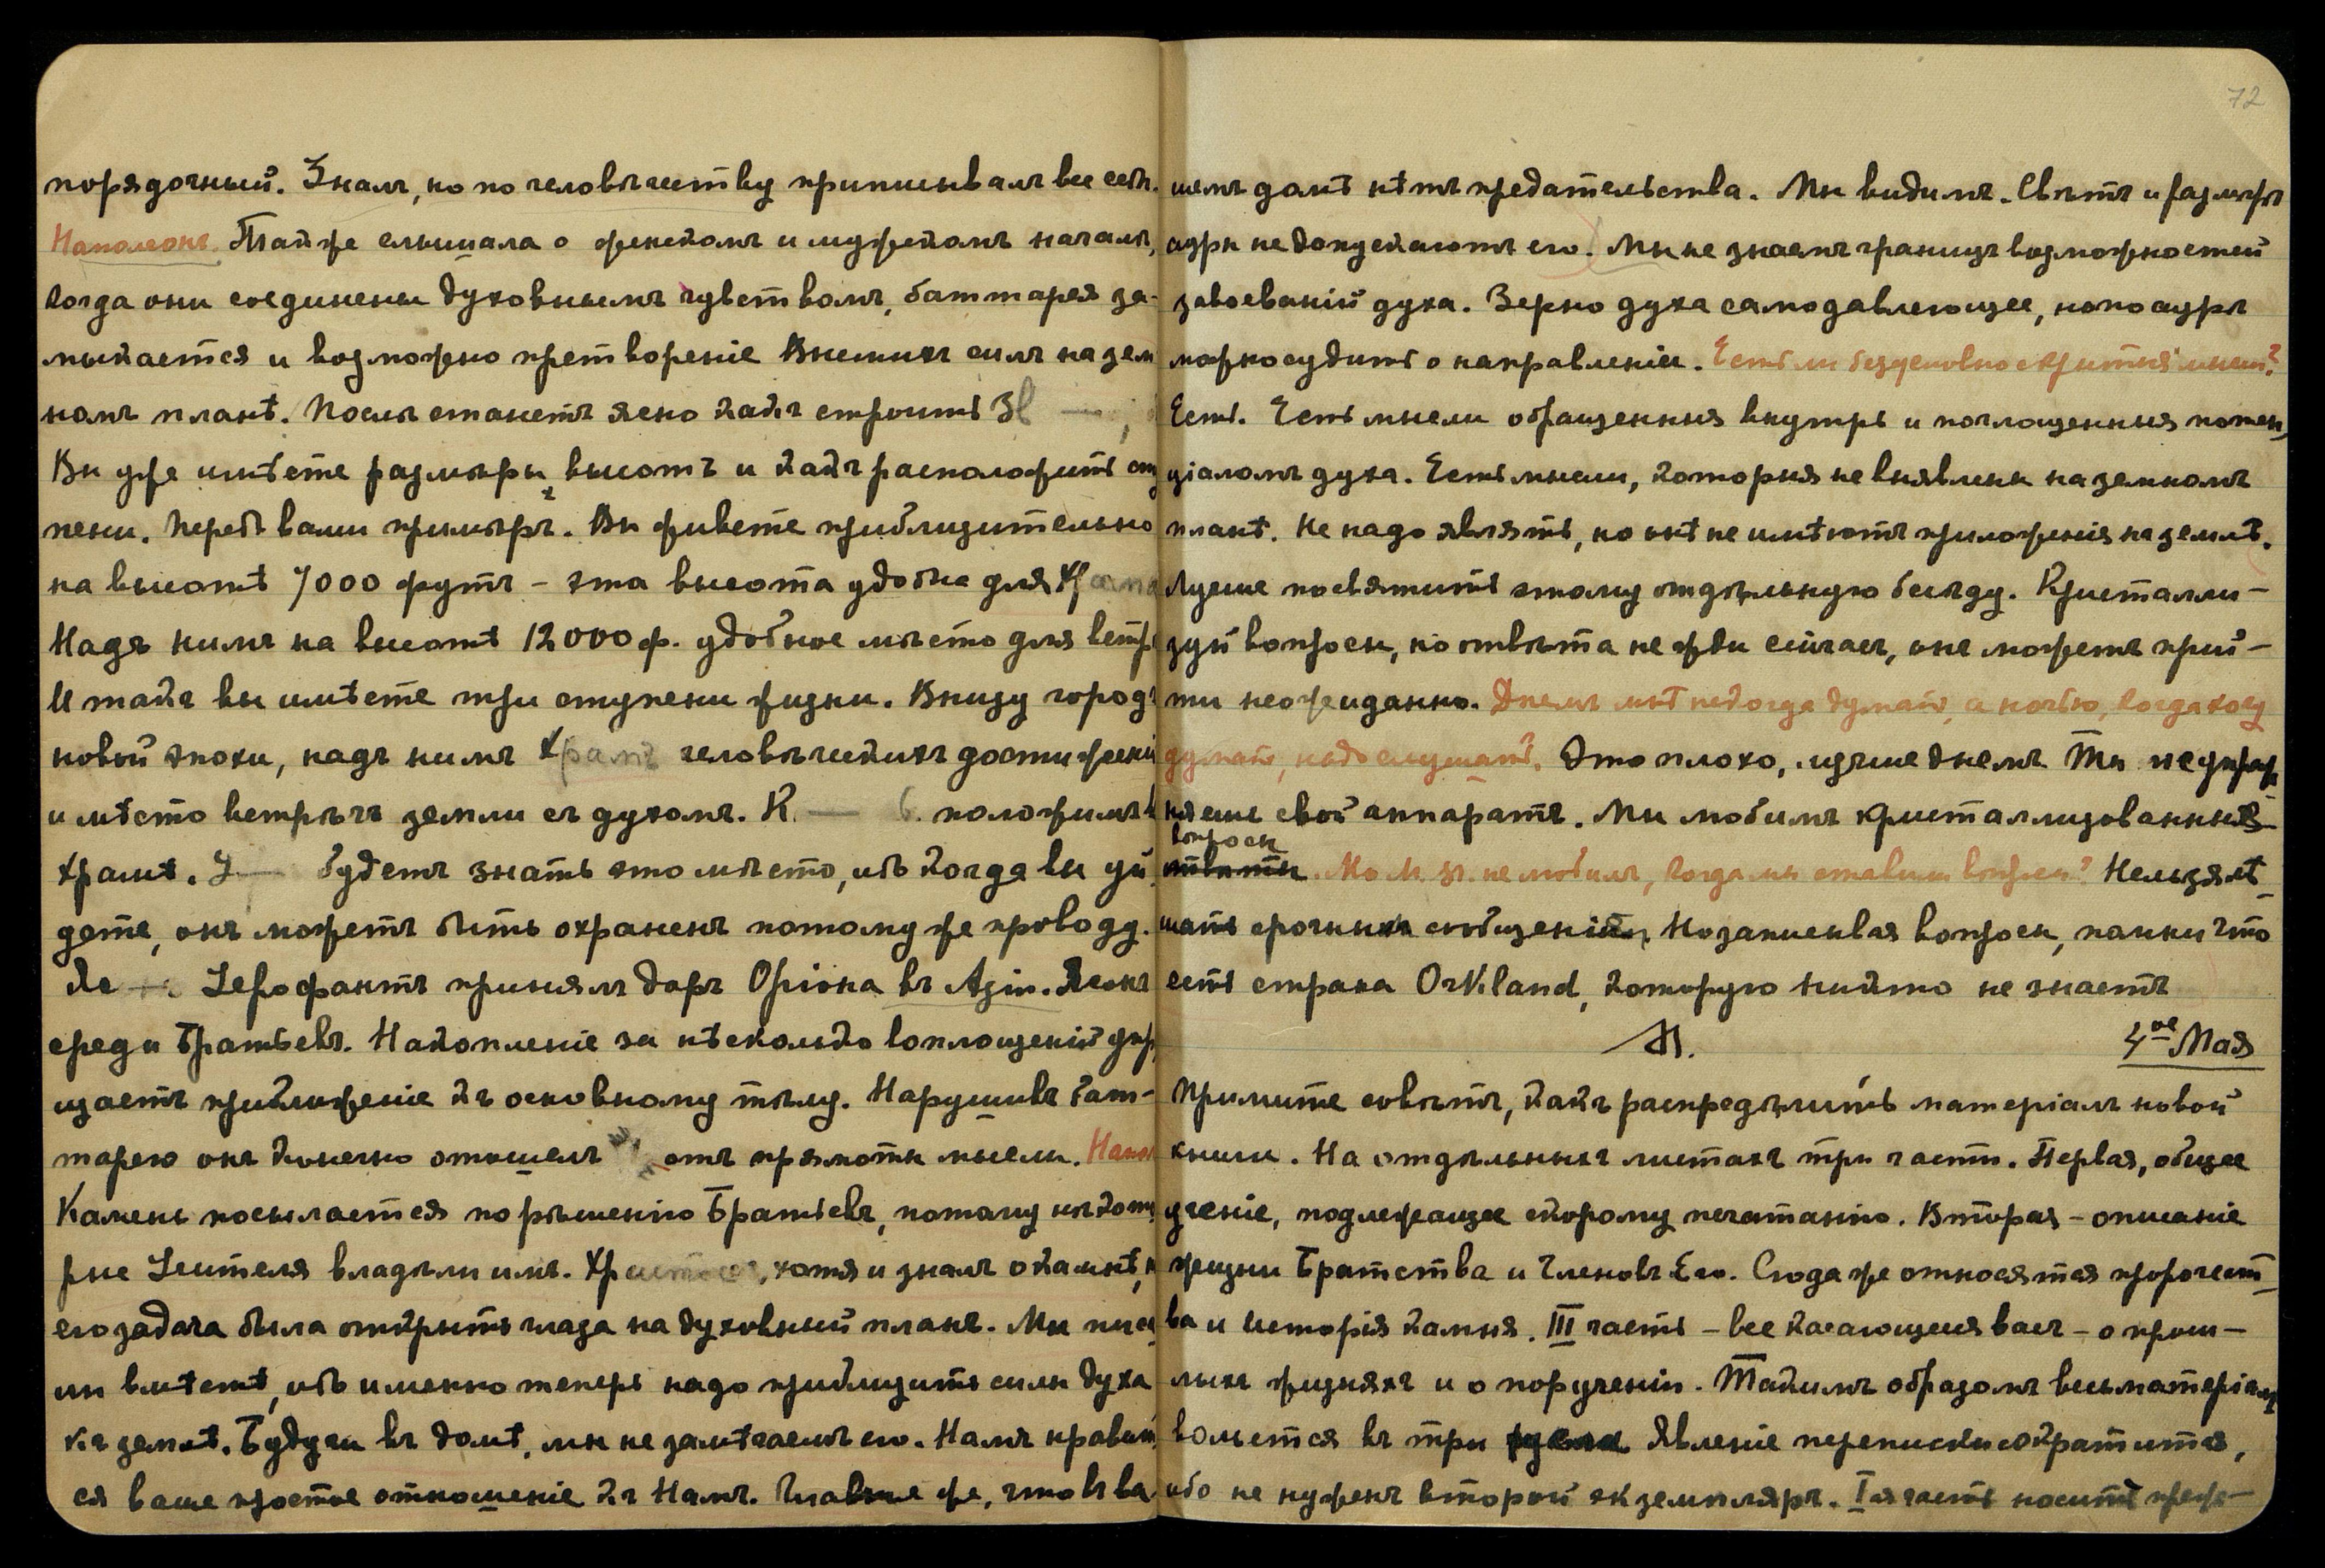 72
порядочный. Зналъ, но по человѣчеству приписывалъ все себѣ.
Наполеонъ. Также слышала о женскомъ и мужскомъ началѣ,
когда они соединены духовнымъ чувствомъ, баттарея за-
мыкается и возможно претвореніе Высшихъ силъ на зем
номъ планѣ. Послѣ станетъ ясно какъ строить Зв
Вы уже имѣете размѣры, высотъ и какъ расположить сту
пени. Передъ вами примѣръ. Вы живете приблизительно
на высотѣ 7000 футъ – эта высота удобна для Храма
Надъ нимъ на высотѣ 12000 ф. удобное мѣсто для встрѣ
И такъ вы имѣете три ступени жизни. Внизу городъ
новой эпохи, надъ нимъ Храмъ человѣческихъ достижени
и мѣсто встрѣчъ земли съ духомъ. К. — положимъ
храмѣ. У — будетъ знать это мѣсто, ибо когда вы уй
дете, онъ можетъ быть охраненъ потому же проводу.
Іерофантъ принялъ даръ Оріона въ Азіи. Ясенъ
среди Братьевъ. Накопленіе за нѣсколько воплощеній упр
щаетъ приближеніе къ основному тѣлу. Нарушивъ бат-
тарею онъ конечно отошелъ отъ прямоты мысли. Напол
Камень посылается по рѣшенію Братьевъ, потому нѣкото
рые Учителя владѣли имъ. Христосъ, хотя и зналъ о камнѣ, н
его задача была открыть глаза на духовный планъ. Мы писа
ли вмѣстѣ, ибо именно теперь надо приблизить силы духа
къ землѣ. Будучи въ домѣ, мы не замѣчаемъ его. Намъ нравит
ся ваше простое отношеніе къ Намъ. Главное же, что въ ва
шемъ домѣ нѣтъ предательства. Мы видимъ. Свѣтъ и размѣръ
ауры не допускаютъ его. Мы не знаемъ границъ возможностей
завоеваній духа. Зерно духа самодавлеющее, но по аурѣ
можно судить о направленіи. Есть ли безусловно скрытыя мысли?
Есть. Есть мысли обращенныя внутрь и поглощенныя потен
ціаломъ духа. Есть мысли, которыя не выявлены на земномъ
планѣ. Не надо являть, но онѣ не имѣютъ приложенія на землѣ.
Лучше посвятить этому отдѣльную бесѣду. Кристалли-
зуй вопросы, но отвѣта не жди сейчасъ, онъ можетъ прий-
ти неожиданно. Днемъ мнѣ некогда думать, а ночью, когда хочу
думать, надо слушать. Это плохо, лучше днемъ. Ты не упраж
няешь свой аппаратъ. Мы любимъ кристаллизованныя
вопросы
отвѣты. Но М. М. не любилъ, когда мы ставили вопросы? Нельзя мѣ
шать срочныхъ сообщеній, Но записывая вопросы, пойми что
есть страна Orkiland, которую никто не знаетъ
М. 4ое Мая
Примите совѣтъ, какъ распредѣлить матеріалъ новой
книги. На отдѣльныхъ листахъ три части. Первая, общее
ученіе, подлежащее скорому печатанію. Вторая – описаніе
жизни Братства и Членовъ Его. Сюда же относятся пророчест
ва и исторія камня. III часть – все касающееся васъ – о прош-
лыхъ жизняхъ и о порученіи. Такимъ образомъ весь матеріалъ
вольется въ три Явленіе переписки сократится,
ибо не нуженъ второй экземпляръ. I я часть носитъ преж-